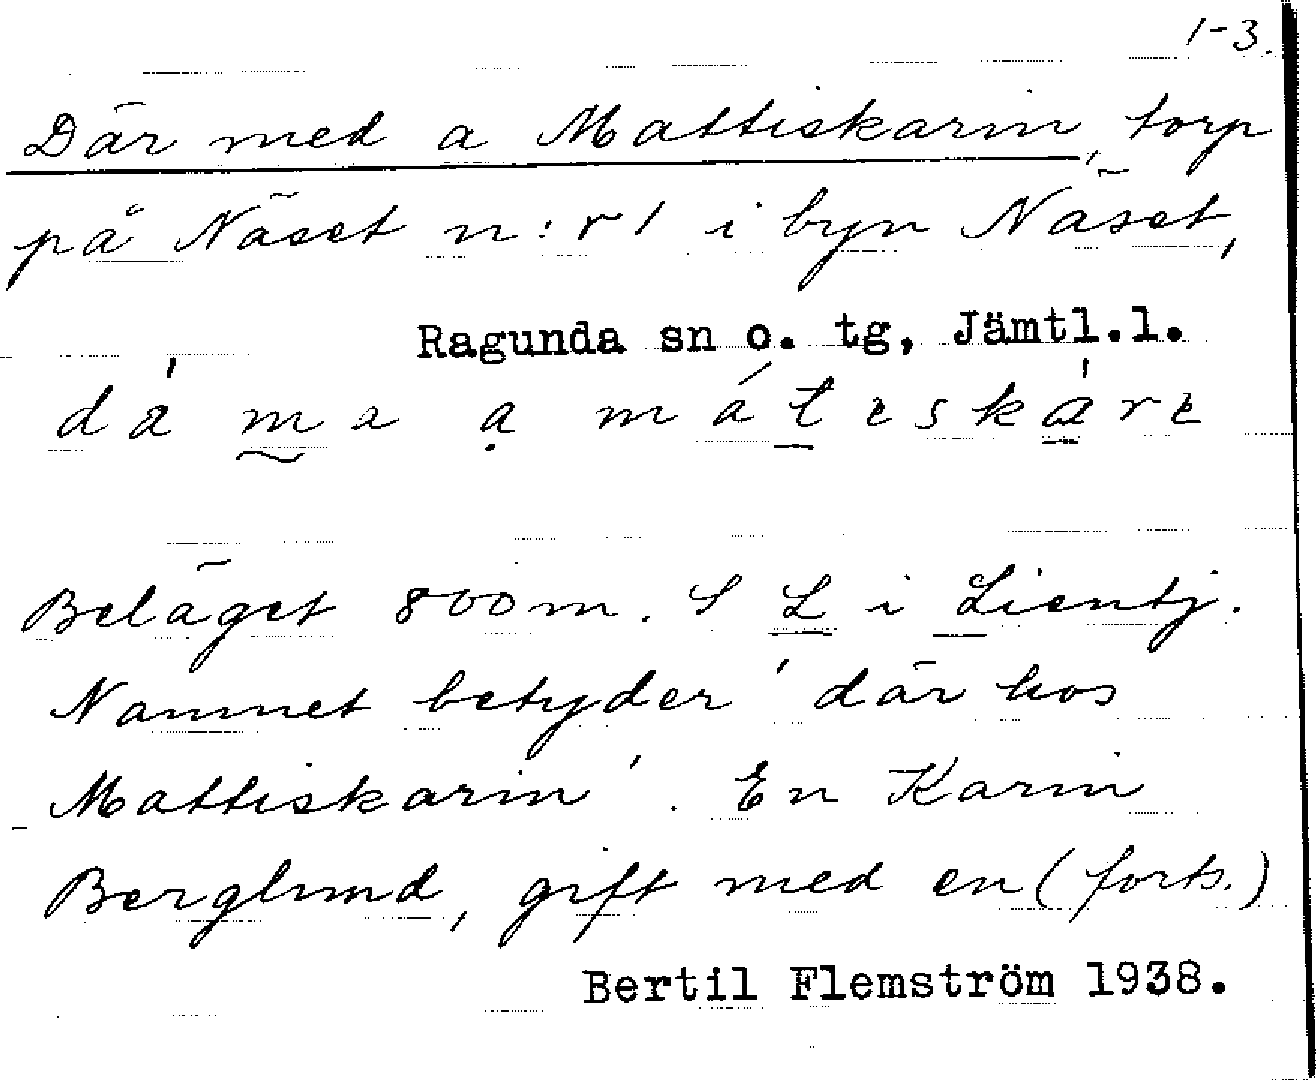 1-3.
Där med a Mattiskarin, torp
på Näset n:r 1 i byn Näset,
Ragunda sn o. tg, Jämtl.l.
dá ma ạ máteskáre
Beläget 800 m. S L i Lientj.
Namnet betyder 'där hos
Mattiskarin'. En Karin
Berglund, gift med en (forts.)
Bertil Flemström 1938.